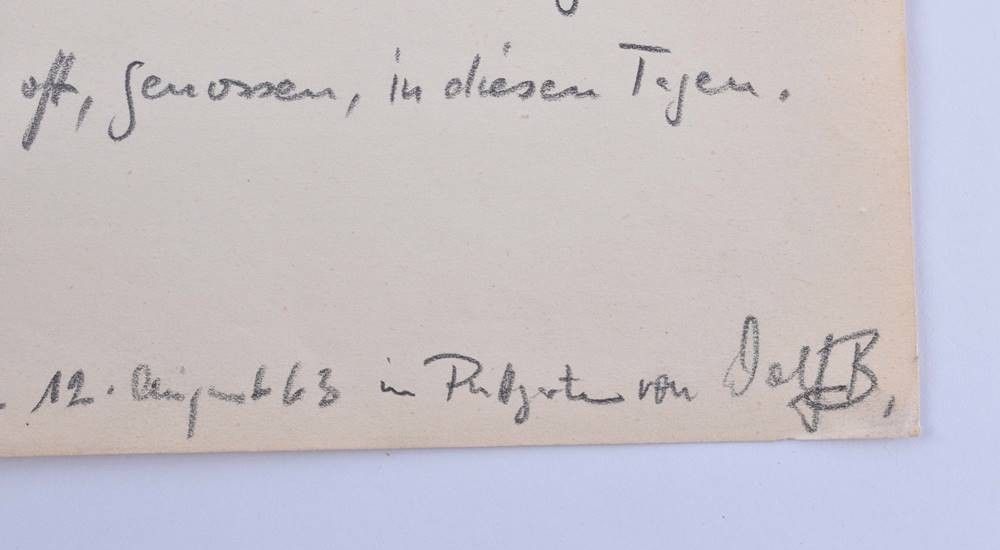 oft, genossen, in diesen Tagen.
12. August 63 in Putgarten von